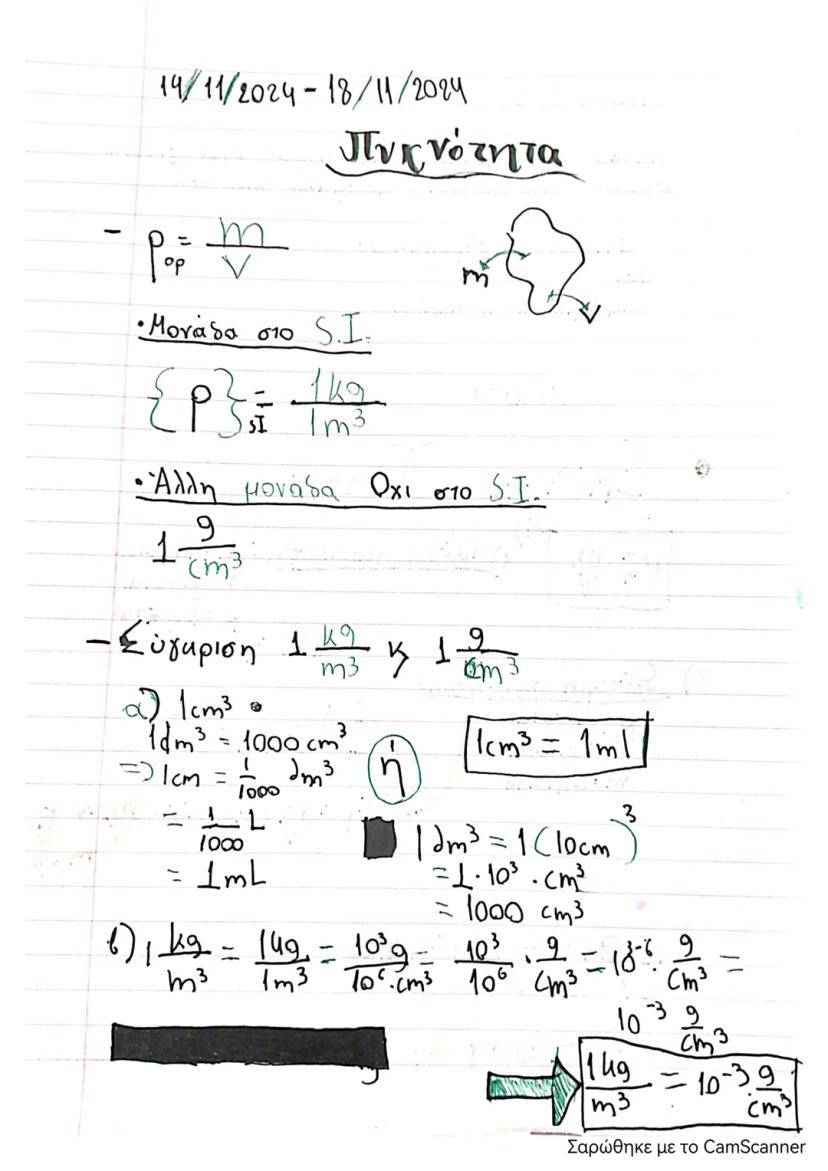 14/11/2024 - 18/11/2024
Πυκνότητα
- ρ ορ = m/V
m
V
• Μονάδα στο S.I.
{ρ} SI = 1kg/1m³
• Άλλη μονάδα Οχι στο S.I.
1 g/cm³
- Σύγκριση 1 kg/m³ ϗ 1 g/cm³
α) 1cm³
1dm³ = 1000 cm³
=> 1cm = 1/1000 dm³
= 1/1000 L
= 1mL
ή
1cm³ = 1ml
1dm³ = 1(10cm)³
= 1·10³·cm³
= 1000 cm³
β) 1 kg/m³ = 1kg/1m³ = 10³g/10⁶·cm³ = 10³/10⁶ · g/cm³ = 10³⁻⁶ · g/cm³ =
10⁻³ g/cm³
1kg/m³ = 10⁻³ g/cm³
Σαρώθηκε με το CamScanner